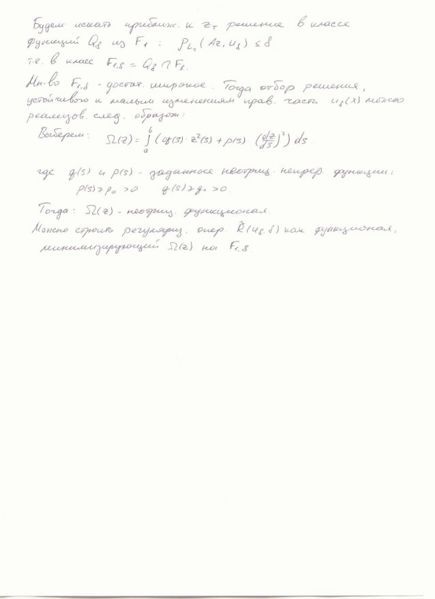 Будем искать приближ. к z_T решение в классе
функций Q_δ из F_1 : ρ_{L_2}(Az, u_δ) ≤ δ
т.е. в классе F_{1,δ} = Q_δ ∩ F_1.
Мн-во F_{1,δ} - достат. широкое. Тогда отбор решения,
устойчивого к малым изменениям прав. части u_δ(x) можно
реализов. след. образом:
Выберем: Ω(z) = ∫_a^b (q(s) z²(s) + p(s) (dz/ds)²) ds
где q(s) и p(s) - заданные неотриц. непрер. функции;
p(s) ≥ p_0 > 0 q(s) ≥ q_0 > 0
Тогда: Ω(z) - неотриц. функционал
Можно строить регуляриз. опер. R̃(u_δ, δ) как функционал,
минимизирующий Ω(z) на F_{1,δ}